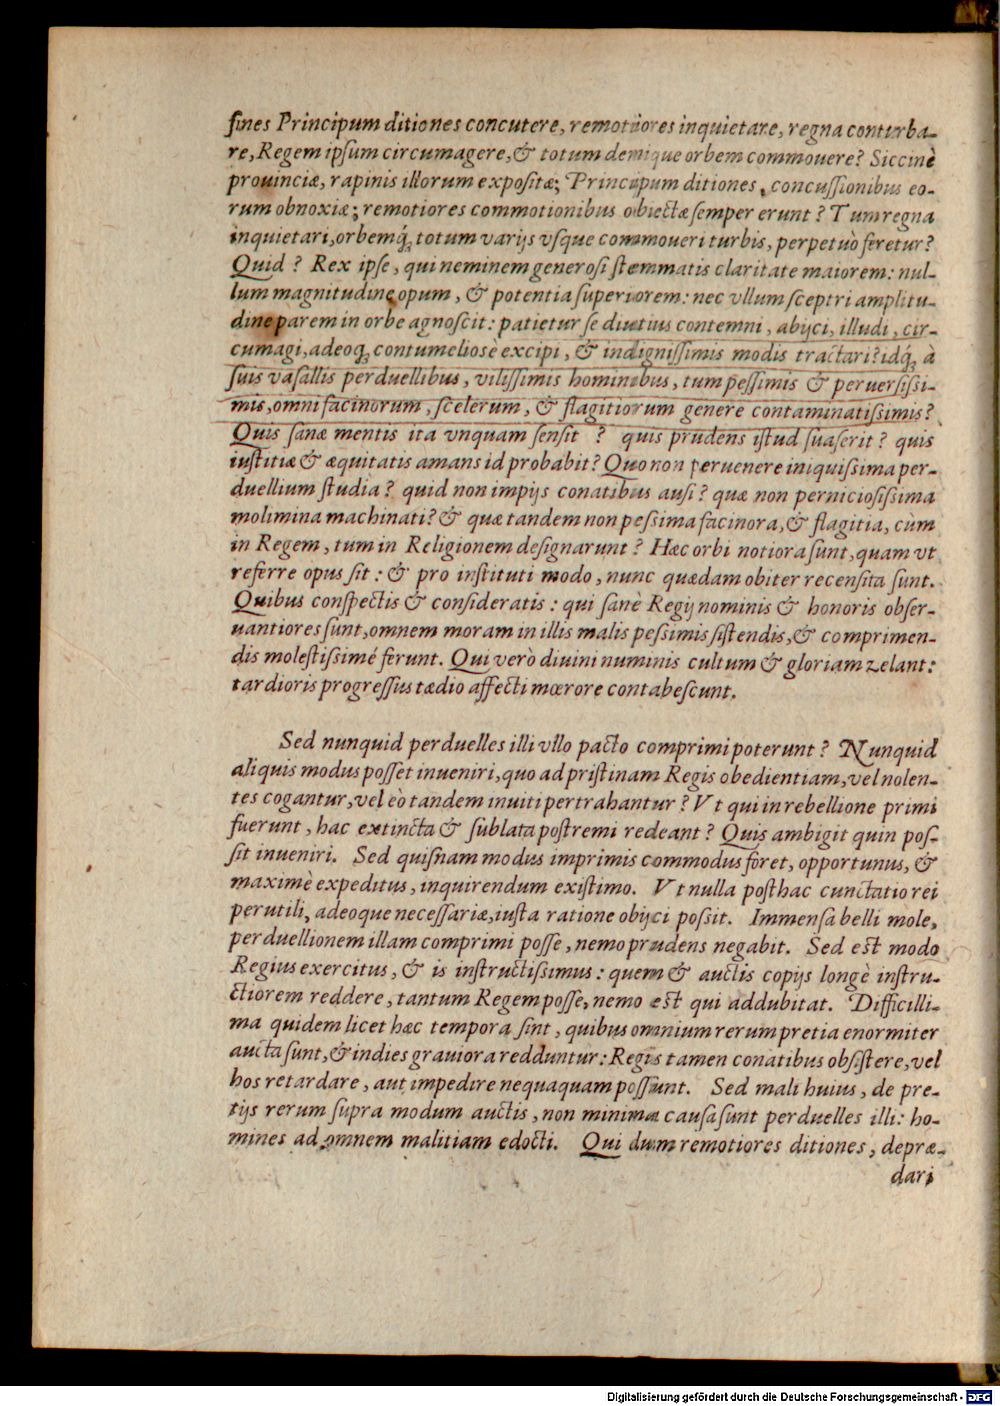 fines Principum ditiones concutere, remotiores inquietare, regna conturba-
re, Regem ipſum circumagere, & totum denique orbem commouere? Siccinè
prouinciæ, rapinis illorum expoſitæ; Principum ditiones, concuſſionibus eo-
rum obnoxiæ; remotiores commotionibus obiectæ ſemper erunt? Tum regna
inquietari, orbemq́; totum varijs vſque commoueri turbis, perpetuò feretur?
Quid? Rex ipſe, qui neminem generoſi ſtemmatis claritate maiorem: nul-
lum magnitudine opum, & potentia ſuperiorem: nec vllum ſceptri amplitu-
dine parem in orbe agnoſcit: patietur ſe diutius contemni, abijci, illudi, cir-
cumagi, adeoq; contumelioſè excipi, & indigniſſimis modis tractari? idq́; à
ſuis vaſallis perduellibus, viliſſimis hominibus, tum peſſimis & peruerſiſſi-
mis, omni facinorum, ſcelerum, & flagitiorum genere contaminatiſſimis?
Quis ſanæ mentis ita vnquam ſenſit ? quis prudens iſtud ſuaſerit? quis
iuſtitiæ & æquitatis amans id probabit? Quo non peruenere iniquiſſima per-
duellium ſtudia? quid non impijs conatibus auſi? quæ non pernicioſiſſima
molimina machinati? & quæ tandem non peſſima facinora, & flagitia, cùm
in Regem, tum in Religionem deſignarunt? Hæc orbi notiora ſunt, quam vt
referre opus ſit: & pro inſtituti modo, nunc quædam obiter recenſita ſunt.
Quibus conſpectis & conſideratis: qui ſanè Regij nominis & honoris obſer-
uantiores ſunt, omnem moram in illis malis peſſimis ſiſtendis, & comprimen-
dis moleſtiſſimé ferunt. Qui verò diuini numinis cultum & gloriam zelant:
tardioris progreſſus tædio affecti mœrore contabeſcunt.
Sed nunquid perduelles illi vllo pacto comprimi poterunt? Nunquid
aliquis modus poſſet inueniri, quo ad priſtinam Regis obedientiam, vel nolen-
tes cogantur, vel eò tandem inuiti pertrahantur? Vt qui in rebellione primi
fuerunt, hac extincta & ſublata poſtremi redeant? Quis ambigit quin poſ-
ſit inueniri. Sed quiſnam modus imprimis commodus foret, opportunus, &
maximè expeditus, inquirendum exiſtimo. Vt nulla poſthac cunctatio rei
perutili, adeoque neceſſariæ, iuſta ratione obijci poſſit. Immenſa belli mole,
perduellionem illam comprimi poſſe, nemo prudens negabit. Sed eſt modo
Regius exercitus, & is inſtructiſſimus: quem & auctis copijs longè inſtru-
ctiorem reddere, tantum Regem poſſe, nemo eſt qui addubitat. Difficilli-
ma quidem licet hæc tempora ſint, quibus omnium rerum pretia enormiter
aucta ſunt, & indies grauiora redduntur: Regis tamen conatibus obſiſtere, vel
hos retardare, aut impedire nequaquam poſſunt. Sed mali huius, de pre-
tijs rerum ſupra modum auctis, non minimæ cauſa ſunt perduelles illi: ho-
mines ad omnem malitiam edocti. Qui dum remotiores ditiones, depræ-
dari
Digitalisierung gefördert durch die Deutsche Forschungsgemeinschaft - DFG